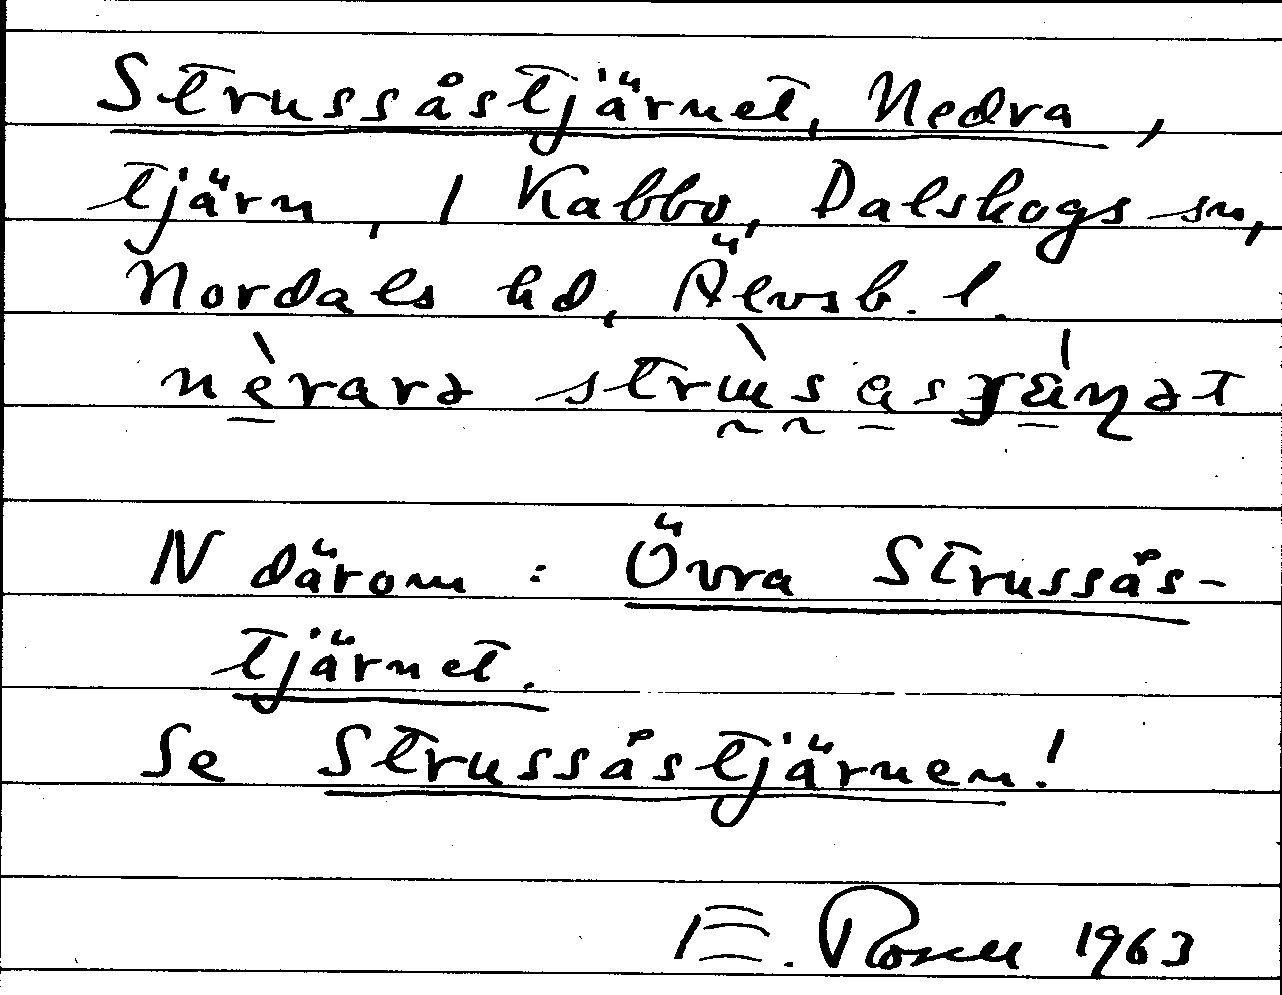 Strussåstjärnet, Nedra,
tjärn, i Kabbo, Dalskogs sn,
Nordals hd, Älvsb. l.
N därom: Övra Strussås-
tjärnet.
Se Strussåstjärnen!
E. Rosell 1963